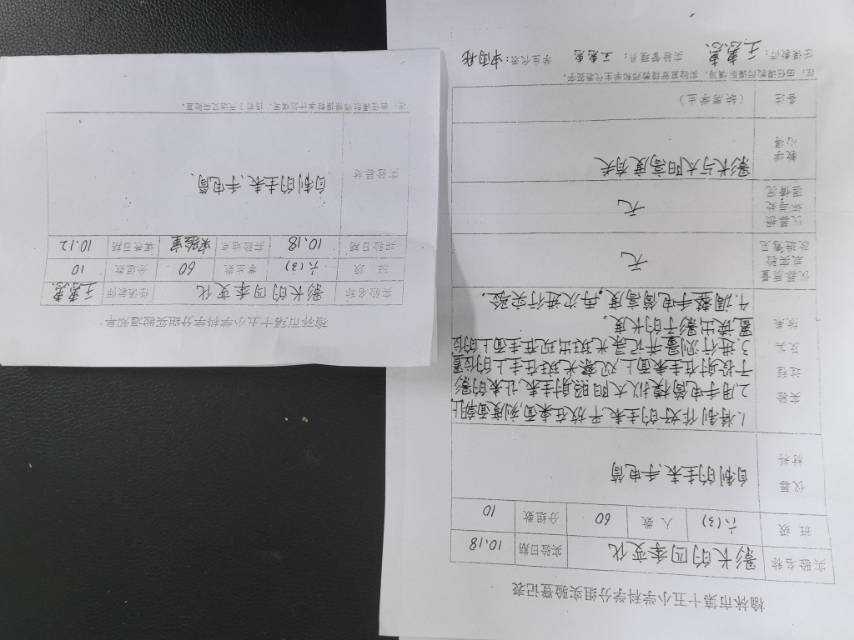 榆林市第十五小学科学分组实验登记表
实验名称 影长的四季变化 实验日期 10.18
班级 六(3) 人数 60 分组数 10
仪器材料 自制的圭表、手电筒
实验过程及效果
1.将制作好的圭表平放在桌面,刻度面朝上
2.用手电筒模拟太阳照射圭表,让表的影
子投射在圭表面上,观察光斑在圭上的位置
3.进行测量并记录光斑出现在圭面上的位
置读出影子的长度。
4.调整手电筒高度,再次进行实验。
仪器质量或实验改进情况 无
仪器损坏与处理情况 无
教学心得 影长与太阳高度有关
备注 (缺席学生)
注:由任课教师填写,实验室管理教师和学生代表签字
任课教师: 王惠惠 实验管理员: 王惠惠 学生代表:
榆林市第十五小学科学分组实验通知单
实验名称 影长的四季变化 任课教师 王惠惠
班级 六(3) 学生数 60 分组数 10
实验日期 10.18 实验地点 实验室 填表日期 10.12
实验器材 自制的圭表、手电筒、